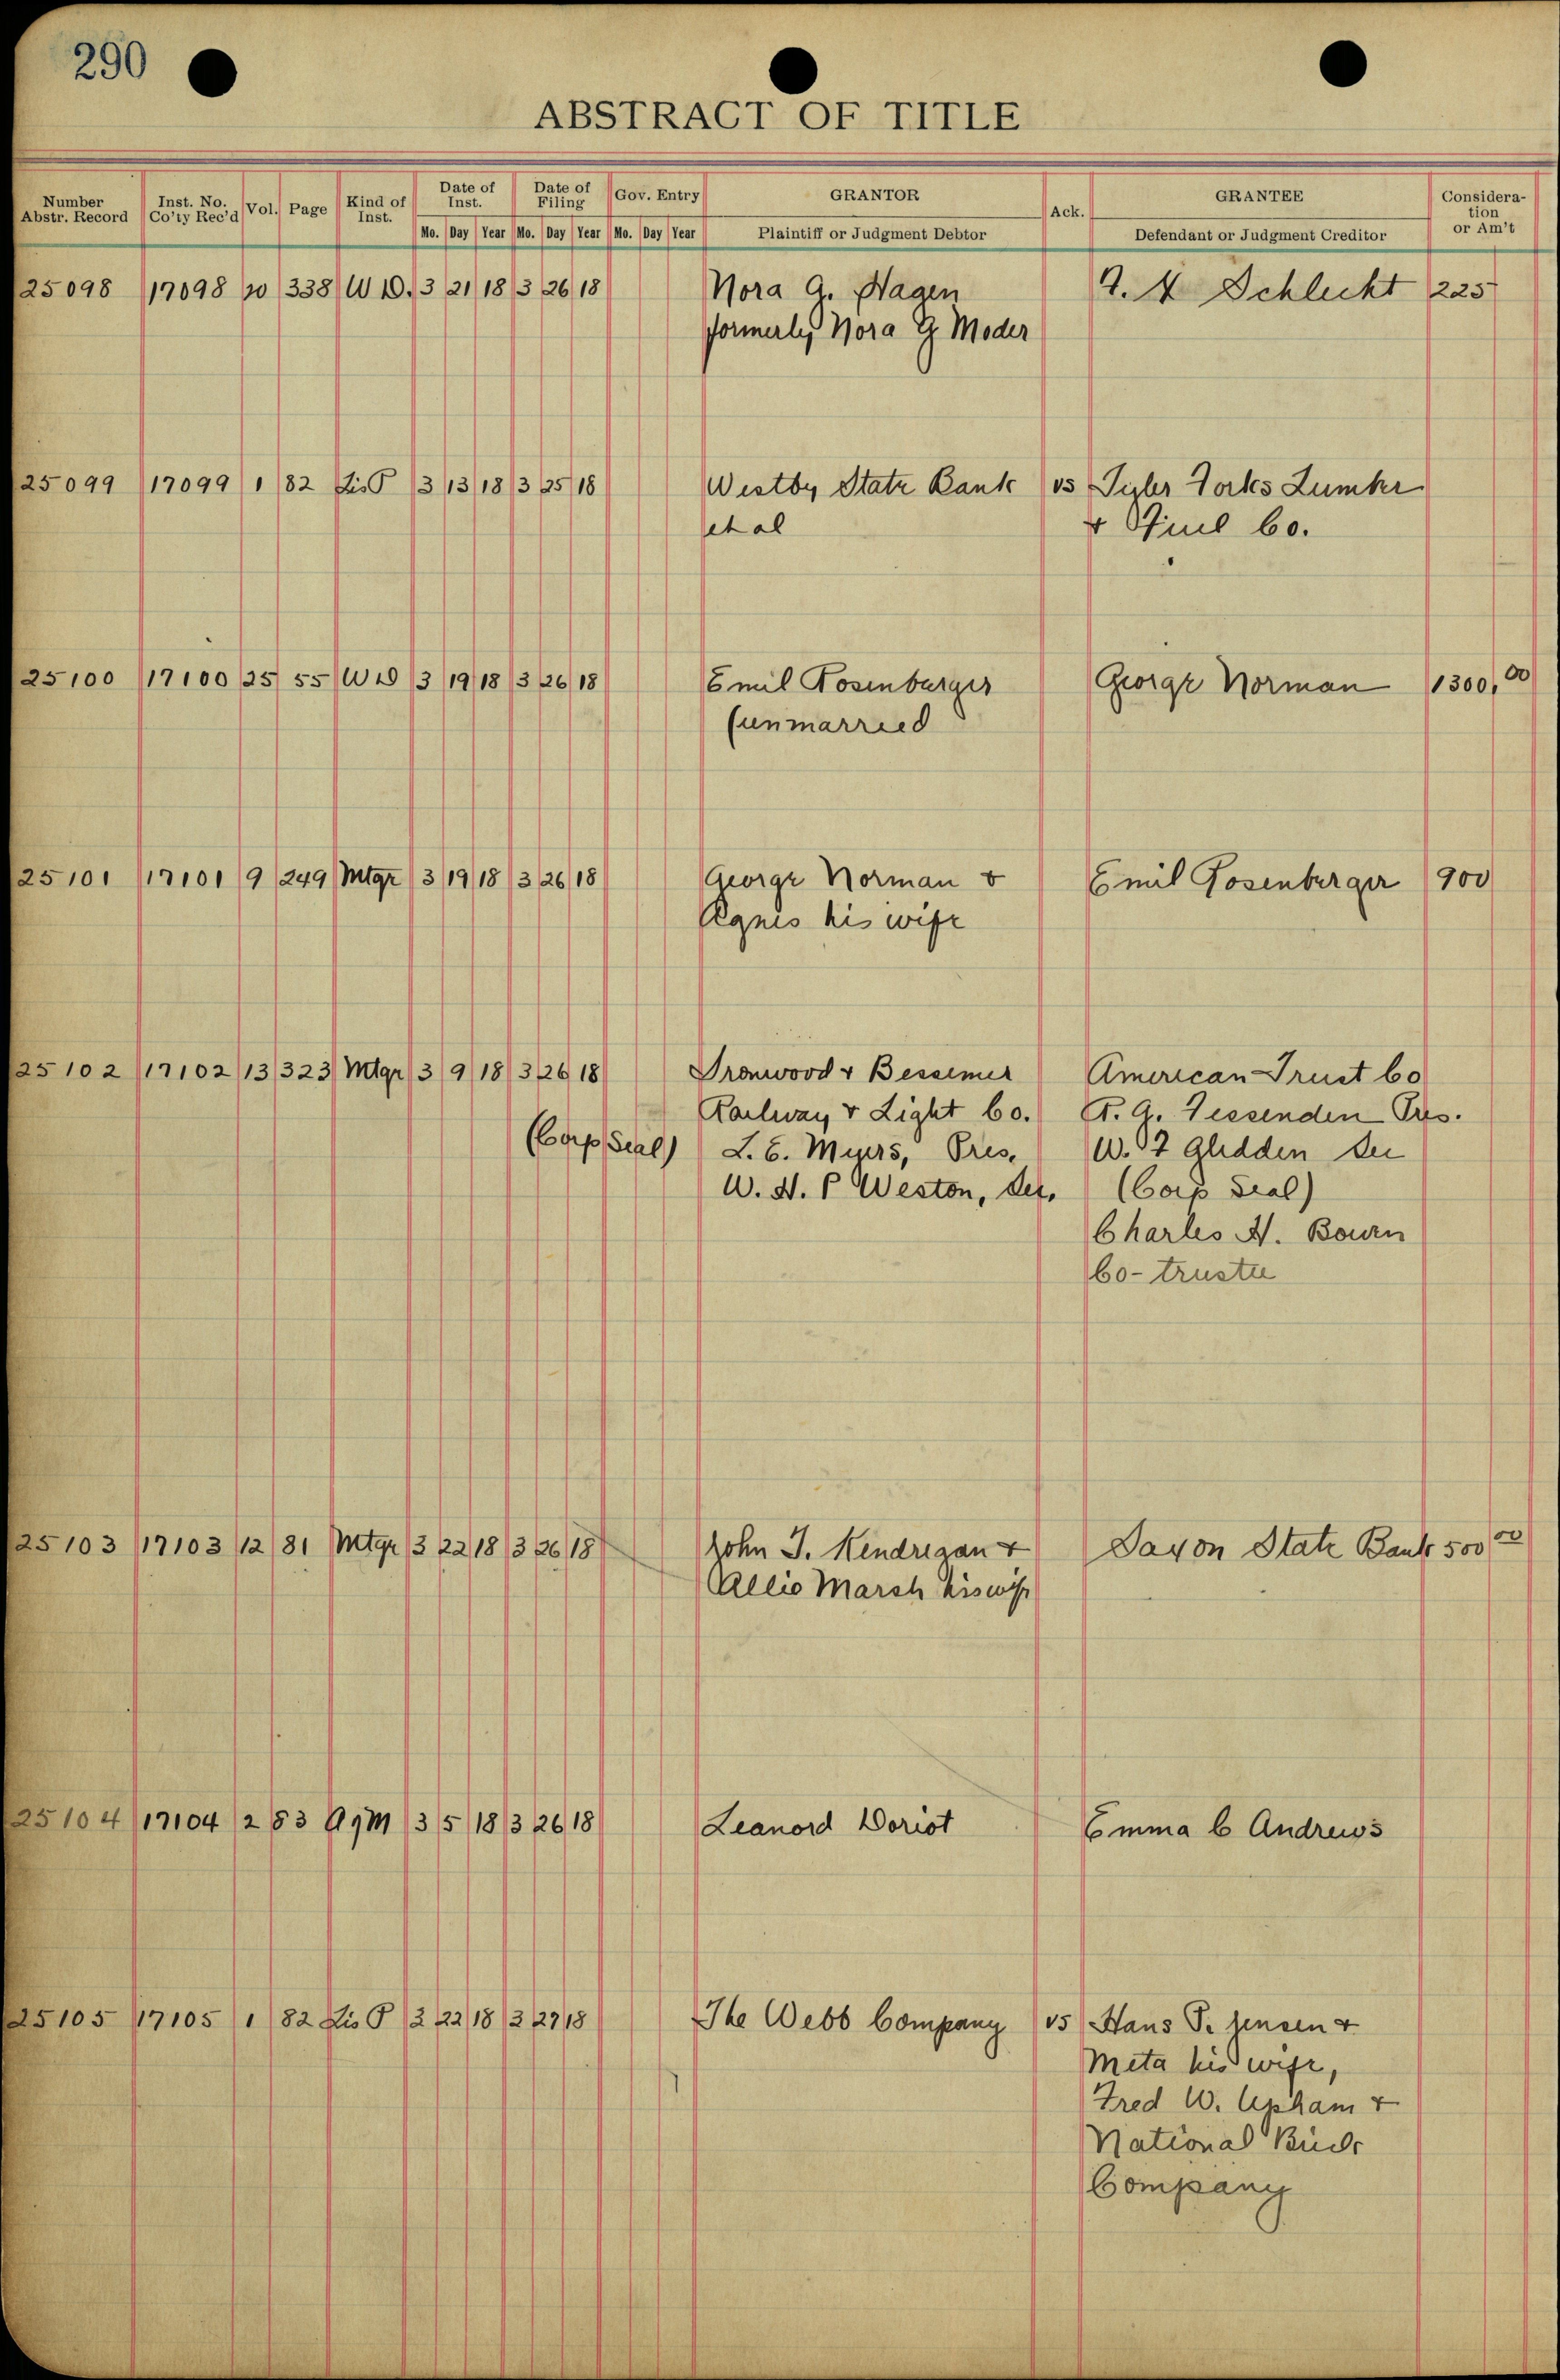 290
ABSTRACT OF TITLE
Number Abstr. Record Inst. No. Co'ty Rec'd Vol. Page Kind of Inst. Date of Inst. Date of Filing Gov. Entry GRANTOR Ack. GRANTEE Consideration or Am't
Mo. Day Year Mo. Day Year Mo. Day Year Plaintiff or Judgment Debtor Defendant or Judgment Creditor
25098 17098 20 338 W D. 3 21 18 3 26 18 Nora G. Hagen Schlecht 225
formerly Nora G Moder
25099 17099 1 82 Lis P 3 13 18 3 25 18 Westby State Bank vs Tyler Forks Lumber
et al & Fuel Co.
25100 17100 25 55 W D 3 19 18 3 26 18 Emil Rosenburger George Norman 1300.00
(unmarried
25101 17101 9 249 Mtge 3 19 18 3 26 18 George Norman & Emil Rosenberger 900
Agnes his wife
25102 17102 13 323 Mtge 3 9 18 3 26 18 Ironwood & Bessemer American Trust Co
Railway & Light Co. R. G. Fessenden Pres.
(Corp Seal) L. E. Myers, Pres. W. F Glidden Sec
W. H. P Weston, Sec. (Corp Seal)
Charles H. Bowen
Co-trustee
25103 17103 12 81 Mtge 3 22 18 3 26 18 John J. Hendrigan & Saxon State Bank 500 00
Allie Marsh his wife
25104 17104 2 83 AgM 3 5 18 3 26 18 Leanord Doriot Emma C Andrews
25105 17105 1 82 Lis P 3 22 18 3 27 18 The Webb Company vs Hans P. Jensen &
Meta his wife,
Fred W. Upham &
National
Company